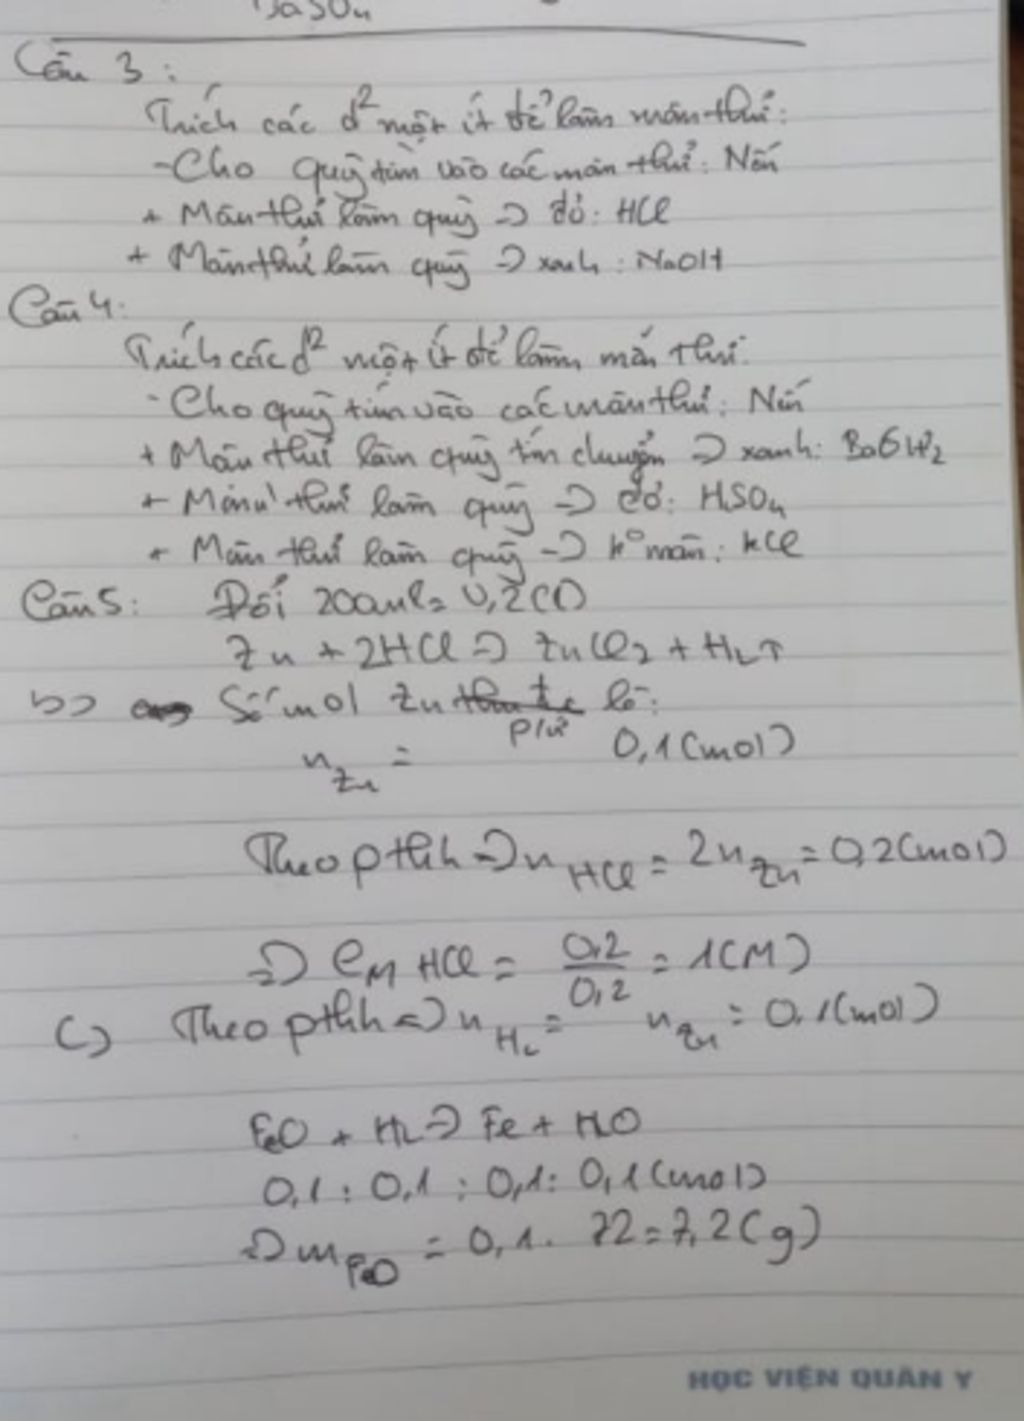 BaSO₄
Câu 3:
Trích các d² một ít để làm mẫu thử:
- Cho quỳ tím vào các mẫu thử: Nếu
+ Mẫu thử làm quỳ => đỏ: HCl
+ Mẫu thử làm quỳ => xanh: NaOH
Câu 4:
Trích các d² một ít để làm mẫu thử:
- Cho quỳ tím vào các mẫu thử: Nếu
+ Mẫu thử làm quỳ tím chuyển => xanh: Ba(OH)₂
+ Mẫu thử làm quỳ => đỏ: H₂SO₄
+ Mẫu thử làm quỳ -> k° màu: KCl
Câu 5: Đổi 200ml = 0,2(l)
Zn + 2HCl => ZnCl₂ + H₂↑
b) Số mol Zn p/ứ là:
n_Zn = 0,1(mol)
Theo pthh => n_HCl = 2n_Zn = 0,2(mol)
=> C_M HCl = 0,2/0,2 = 1(M)
c) Theo pthh => n_H₂ = n_Zn = 0,1(mol)
FeO + H₂ => Fe + H₂O
0,1 : 0,1 : 0,1 : 0,1(mol)
=> m_FeO = 0,1. 72 = 7,2(g)
HỌC VIỆN QUÂN Y